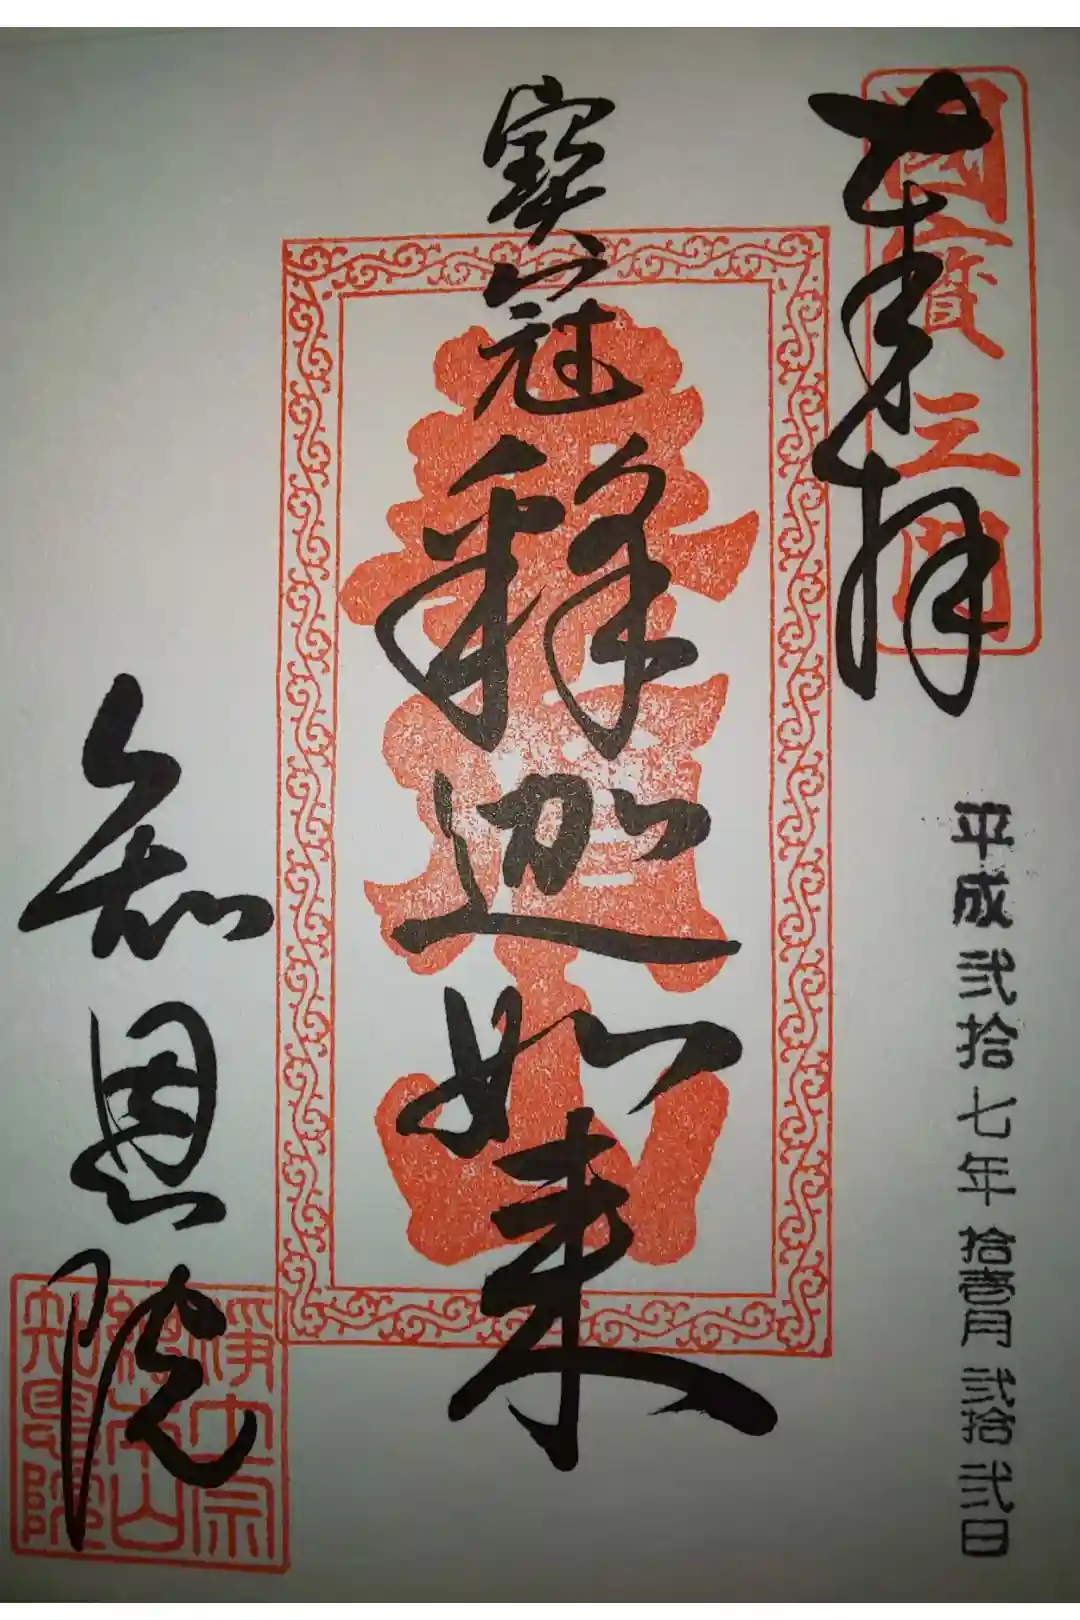 奉拝
國寶三門
平成弐拾七年拾壹月弐拾弐日
寳冠釋迦如来
知恩院
浄土宗
総本山
知恩院